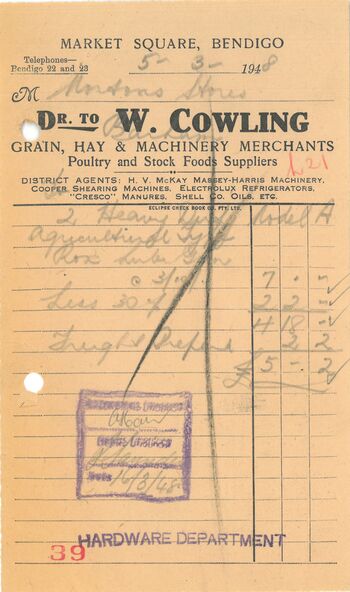 MARKET SQUARE, BENDIGO
Telephones—
Bendigo 22 and 23
5-3-1948
M Mortons Stores
DR. TO W. COWLING
GRAIN, HAY & MACHINERY MERCHANTS
Poultry and Stock Foods Suppliers
L21
DISTRICT AGENTS: H. V. McKAY MASSEY-HARRIS MACHINERY,
COOPER SHEARING MACHINES, ELECTROLUX REFRIGERATORS,
"CRESCO" MANURES, SHELL CO. OILS, ETC.
ECLIPSE CHECK BOOK CO. PTY. LTD.
2 Heavy Model A
Agricultural Type
Lube
7 . -
Less 30% 2 2 -
4 18 -
Freight Prepaid 2 2
£ 5 - 2
16/3/48
HARDWARE DEPARTMENT
39